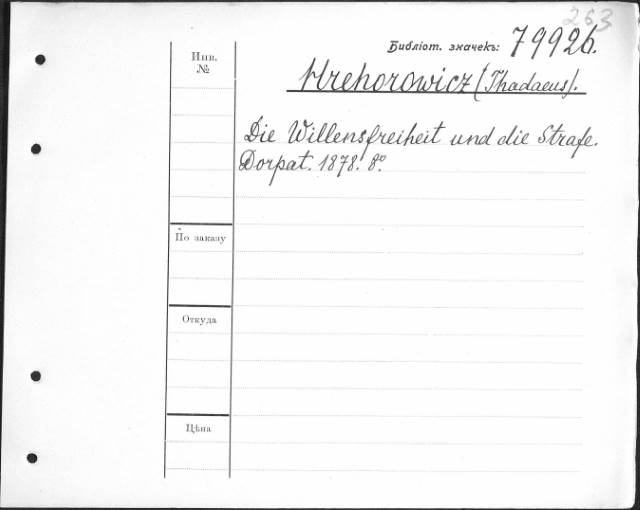 263
Библіот. значекъ: 7992б.
Инв.
№
Hrehorowicz (Thadaeus).
Die Willensfreiheit und die Strafe.
Dorpat. 1878. 8º.
По заказу
Откуда
Цѣна